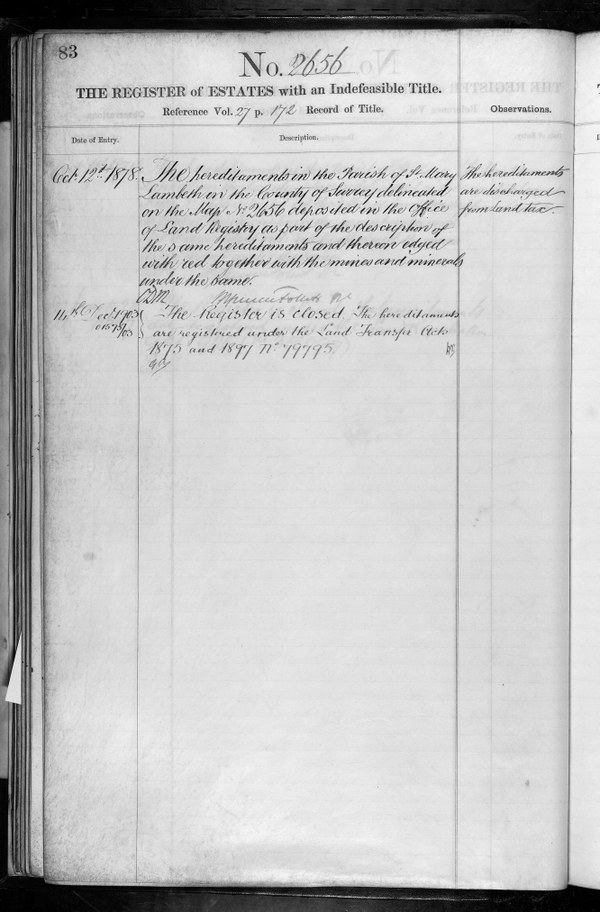 83
No. 2656
THE REGISTER of ESTATES with an Indefeasible Title.
Reference Vol. 27 p. 172 Record of Title.
Observations.
Date of Entry.
Description.
Oct. 12th 1878.
The hereditaments in the Parish of St. Mary
Lambeth in the County of Surrey delineated
on the Map No 2656 deposited in the Office
of Land Registry as part of the description of
the same hereditaments and thereon edged
with red together with the mines and minerals
under the same.
The hereditaments
are discharged
from Land tax.
14th Decr 1903
The Register is closed. The hereditaments
are registered under the Land Transfer Acts
1875 and 1897 No. 79795